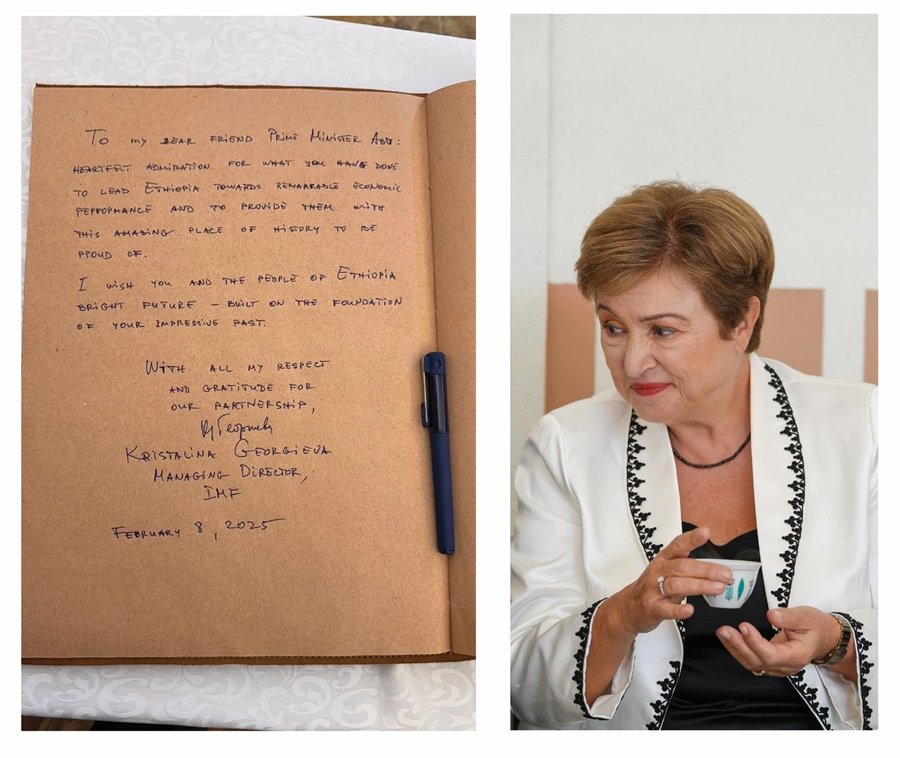 To my dear friend Prime Minister Abiy:
heartfelt admiration for what you have done
to lead Ethiopia towards remarkable economic
performance and to provide them with
this amazing place of history to be
proud of.
I wish you and the people of Ethiopia
bright future – built on the foundation
of your impressive past.
With all my respect
and gratitude for
our partnership,
Kristalina Georgieva
Managing Director,
IMF
February 8, 2025